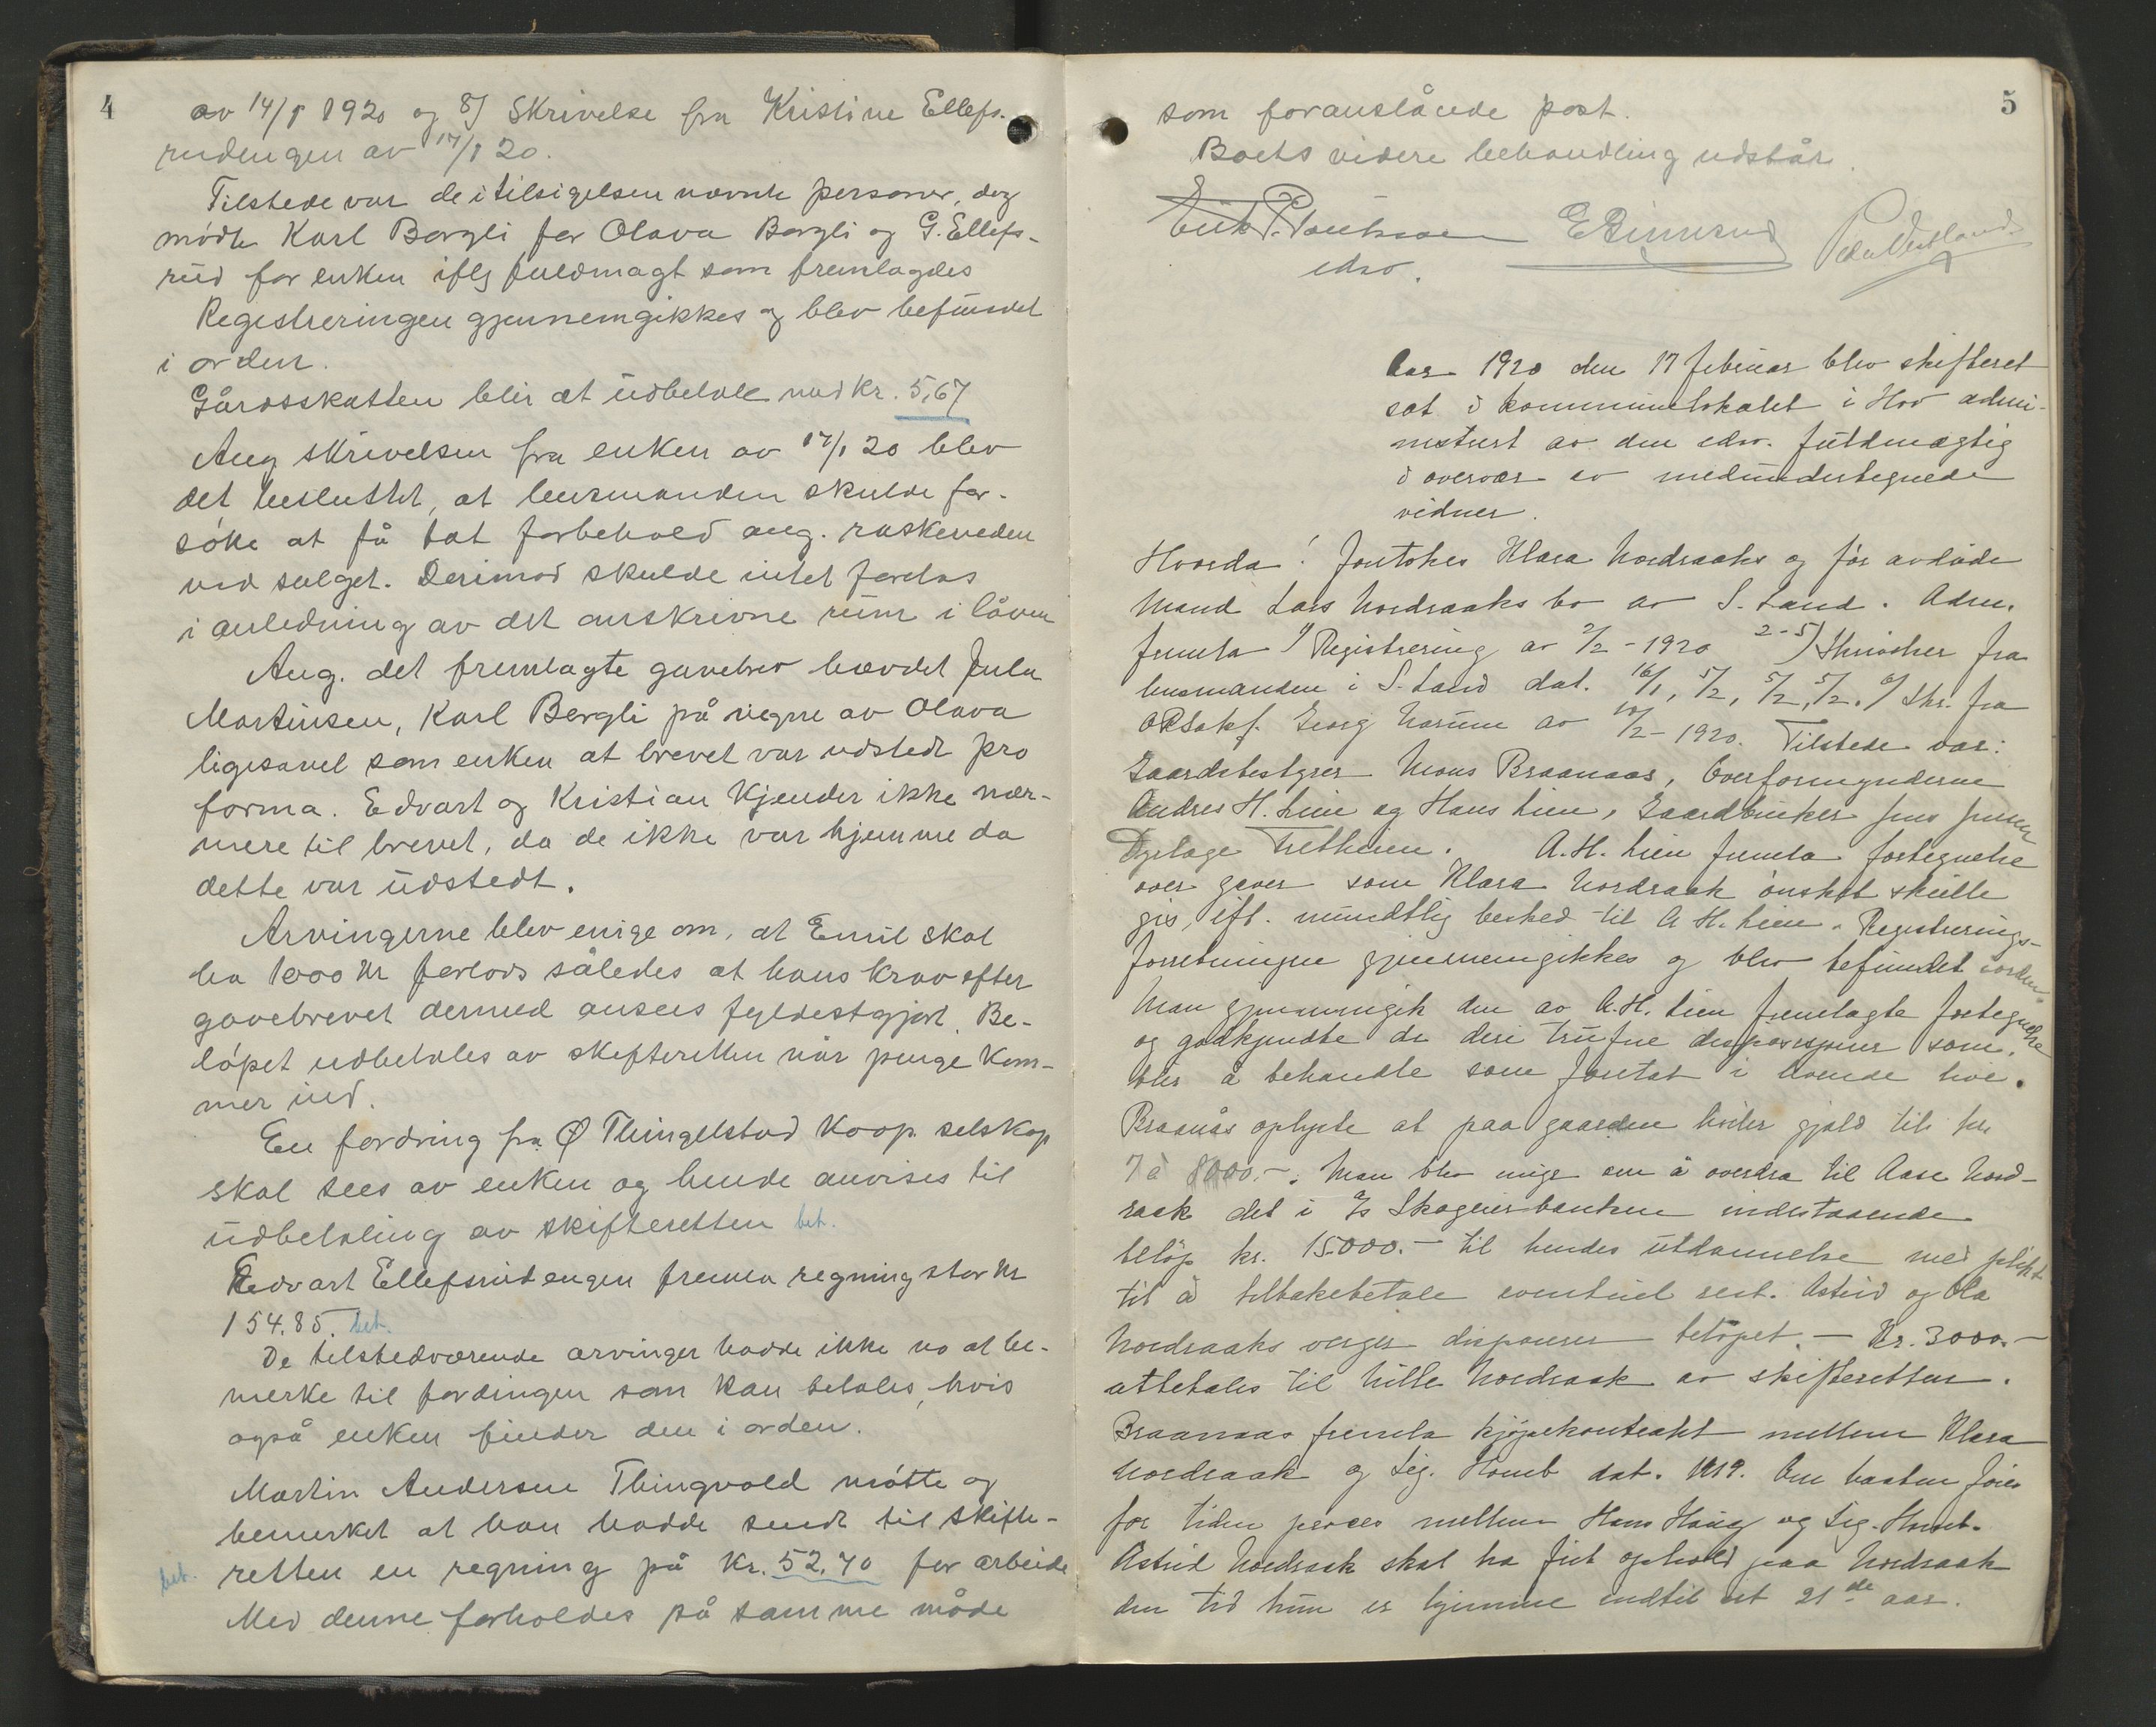 4
av 14/1 1920 og 8) Skrivelse fra Kristine Ellefs-
rudengen av 17/1 20.
Tilstede var de i tilsigelsen nævnte personer, dog
mødte Karl Bergli for Olava Bergli og G. Ellefs-
rud for enken iflg fuldmagt som fremlagdes
Registreringen gjennemgikkes og blev befundet
i orden.
Gårdsskatten blir at udbetale med kr. 5,67
Ang skrivelsen fra enken av 17/1 20 blev
det besluttet, at lensmanden skulde for-
søke at få tat forbehold ang. raskeveden
ved salget. Derimod skulde intet foretas
i anledning av det omskrevne rum i låven
Ang. det fremlagte gavebrev hævdet Jula
Martinsen, Karl Bergli på vegne av Olava
ligesavel som enken at brevet var udstedt pro
forma. Edvart og Kristian kjender ikke nær-
mere til brevet, da de ikke var hjemme da
dette var udstedt.
Arvingerne blev enige om, at Emil skal
ha 1000 kr forlods således at hans krav efter
gavebrevet dermed ansees fyldestgjort. Be-
løpet udbetales av skifteretten når penge kom-
mer ind.
En fordring fra Ø Thingelstad Koop. selskap
skal sees av enken og hende anvises til
udbetaling av skifteretten bet.
Edvart Ellefsrudengen fremla regning stor kr
154.85. bet.
De tilstedværende arvinger hadde ikke no at be-
merke til fordingen som kan betales, hvis
også enken finder den i orden.
Martin Andersen Thingvold møtte og
bemerket at han hadde sendt til skifte-
bet. retten en regning på kr. 52,70 for arbeide
Med denne forholdes på samme måde
5
som foranstående post.
Boets videre behandling udstår.
edsv.
Aar 1920 den 17 februar blev skifteret
sat i kommunelokalet i Hov admi-
nistrert av den edsv. fuldmægtig
i overvær av medundertegnede
vidner.
Hvorda: Foretokes Klara Nordraaks og før avdøde
mand Lars Nordraaks bo av S. Land. Adm.
fremla 1) Registrering av 2/2 - 1920 2-5) Skrivelser fra
lensmanden i S. Land dat. 16/1, 5/2, 5/2, 5/2. 6) Skr. fra
ORSakf. Georg Harum av 10/2 - 1920. Tilstede var:
Gaardsbestyrer Mons Braanaas, Overformynderne
Andres H. Lien og Hans Lien, Gaardbruker Jens Jensen
A.H. Lien fremla fortegnelse
over gaver som Klara Nordraak ønsket skulle
gis, ifl. mundtlig besked til A.H. Lien. Registrerings-
forretningen gjennemgikkes og blev befundet iorden.
Man gjennemgik den av A.H. Lien fremlagte fortegnelse
og godkjendte de deri trufne disposisjoner som
blir å behandle som foretat i levende live.
Braanås oplyste at paa gaarden hviler gjæld til kr.
7 à 8000.-. Man blev enige om å overdra til Aase Nord-
raak det i A/S Skogeierbanken indestaaende
beløp kr. 15000.- til hendes utdannelse med plikt
til å tilbakebetale eventuel rest. Astrid og Ola
Nordraaks verger disponerer beløpet. - Kr. 3000.-
utbetales til Nordraak av skifteretten.
Braanaas fremla kjøpekontrakt mellem Klara
Nordraak og Sig. Homb dat. 1919. føres
for tiden proces mellem Hans Haug og Sig. Homb.
Astrid Nordraak skal ha frit ophold paa Nordraak
den tid hun er hjemme indtil sit 21de aar.